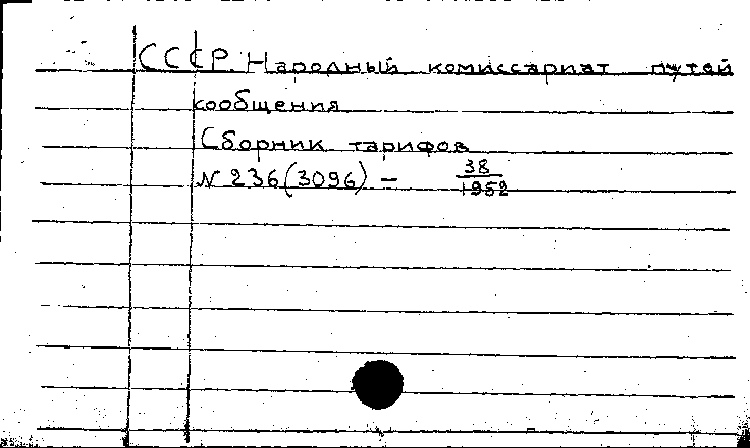 СССР. Народный комиссариат путей
сообщения
Сборник тарифов
N 236(3096) — 38/1952